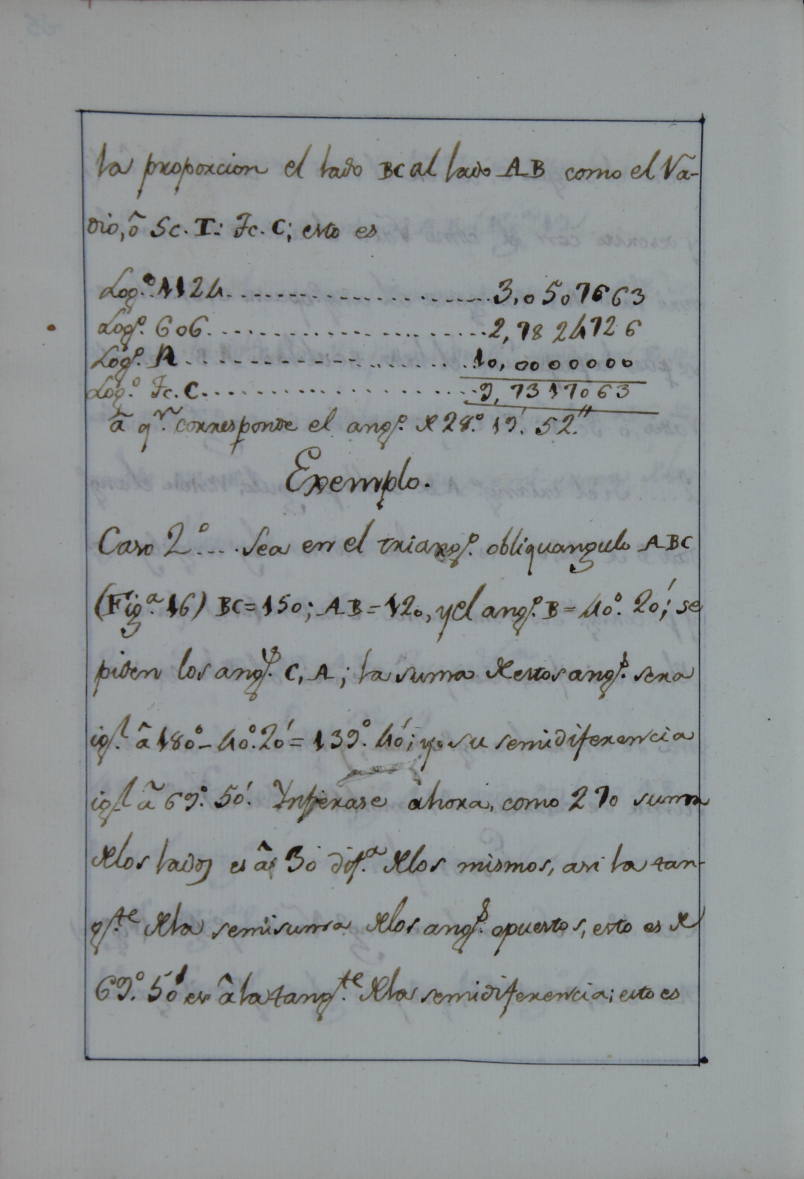 la proporcion el lado BC al lado AB como el Ra-
dio, ô Sc. T: Fc. C; esto es
Log.º 1124..........................3,0507663
Log.º 606...........................2,7824726
Log.º R.............................10,0000000
Log.º Fc. C.........................9,7317063
â q.ᵉ corresponde el ang.º de 28.º 19.′ 52.″
Exemplo.
Caso 2.º.... Sea en el triang.º obliquangulo ABC
(Fig.ª 16) BC=150; AB=120, y el ang.º B=40.º 20′; se
piden los ang.ˢ C, A; la suma de estos ang.ˢ sera
ig.l â 180º-40.º 20′= 139.º 40′; y su semidiferencia
ig.l â 69.º 50′. Ynfierase ahora, como 270 suma
de los lados es â 30 dif.ª de los mismos, asi la tan-
g.te de la semisuma de los ang.ˢ opuestos, esto es de
69.º 50′ es â la tang.te de la semidiferencia; esto es